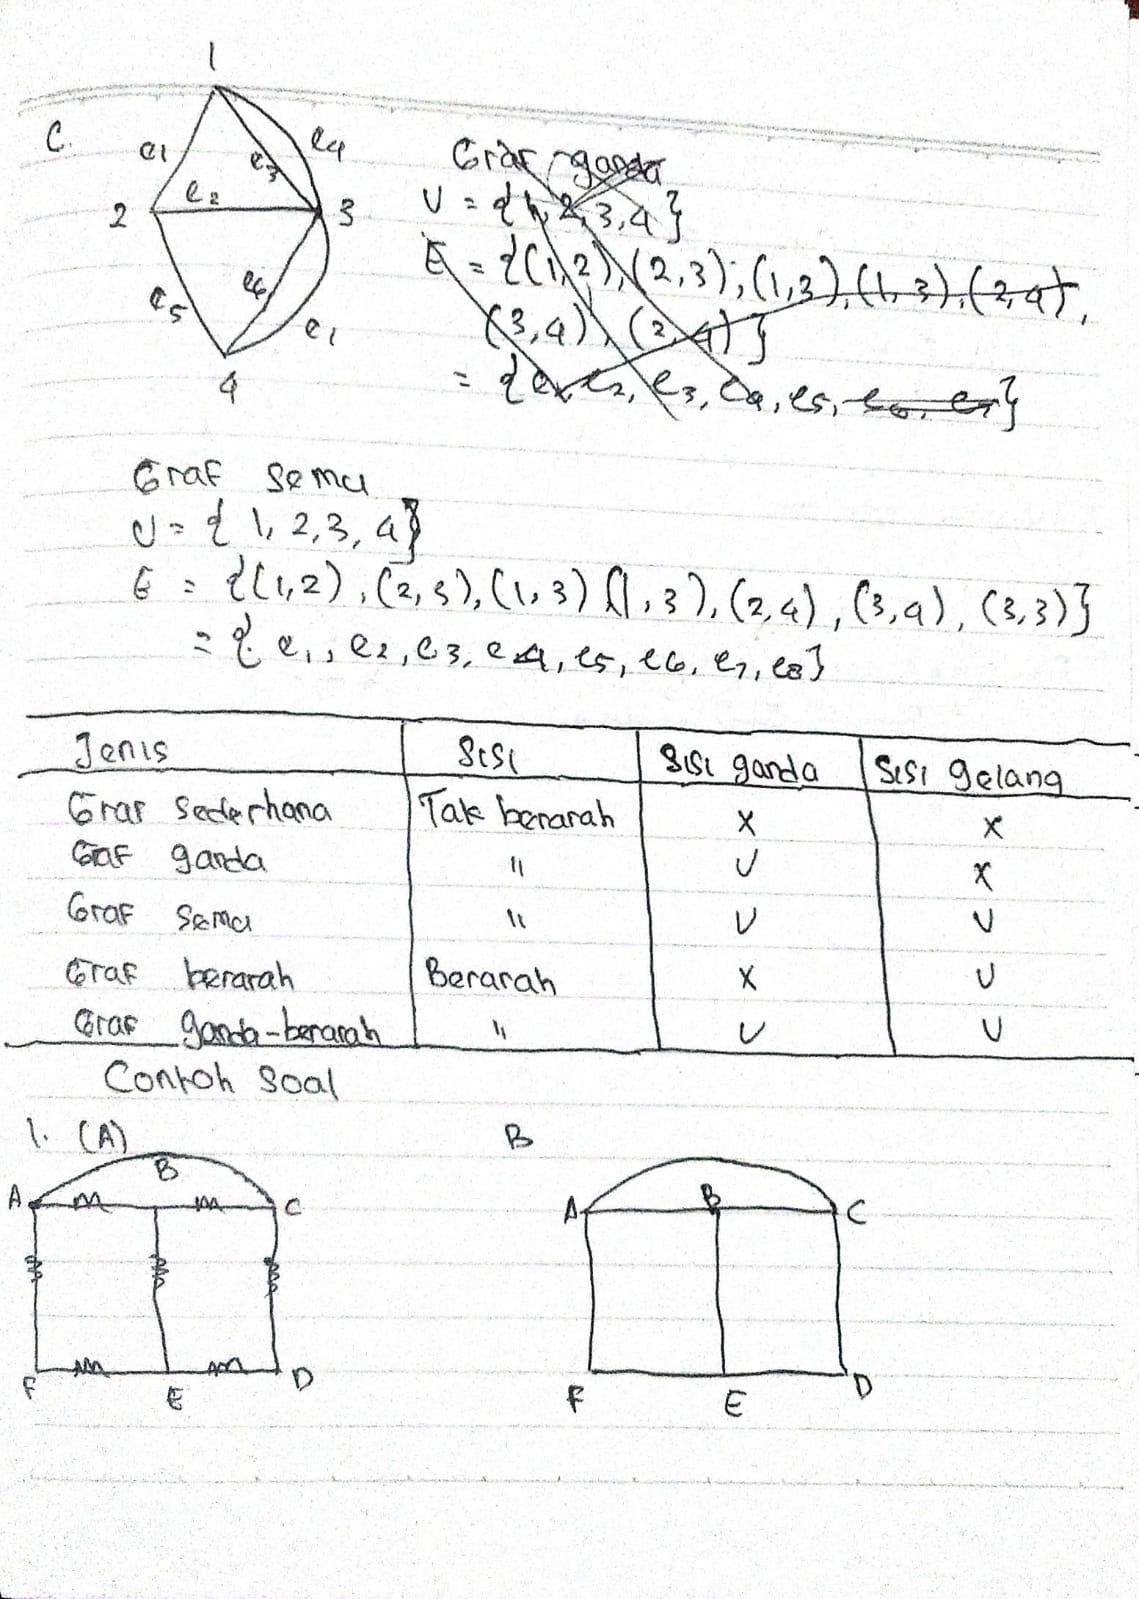 1
C.
e1
e3
e4
e2
2
3
e5
e6
e1
4
Graf ganda
V = {1, 2, 3, 4}
E = {(1,2), (2,3), (1,3), (1,3), (2,4),
(3,4), (2,4)}
= {e1, e2, e3, e4, e5, e6, e7}
Graf Semu
V = {1, 2, 3, 4}
E = {(1,2), (2,3), (1,3) (1,3), (2,4), (3,4), (3,3)}
= {e1, e2, e3, e4, e5, e6, e7, e8}
Jenis Sisi Sisi ganda Sisi gelang
Graf Sederhana Tak berarah x x
Graf ganda " v x
Graf Semu " v v
Graf berarah Berarah x v
Graf ganda-berarah " v v
Contoh Soal
1. (A) B
A B C
F E D
A B C
F E D